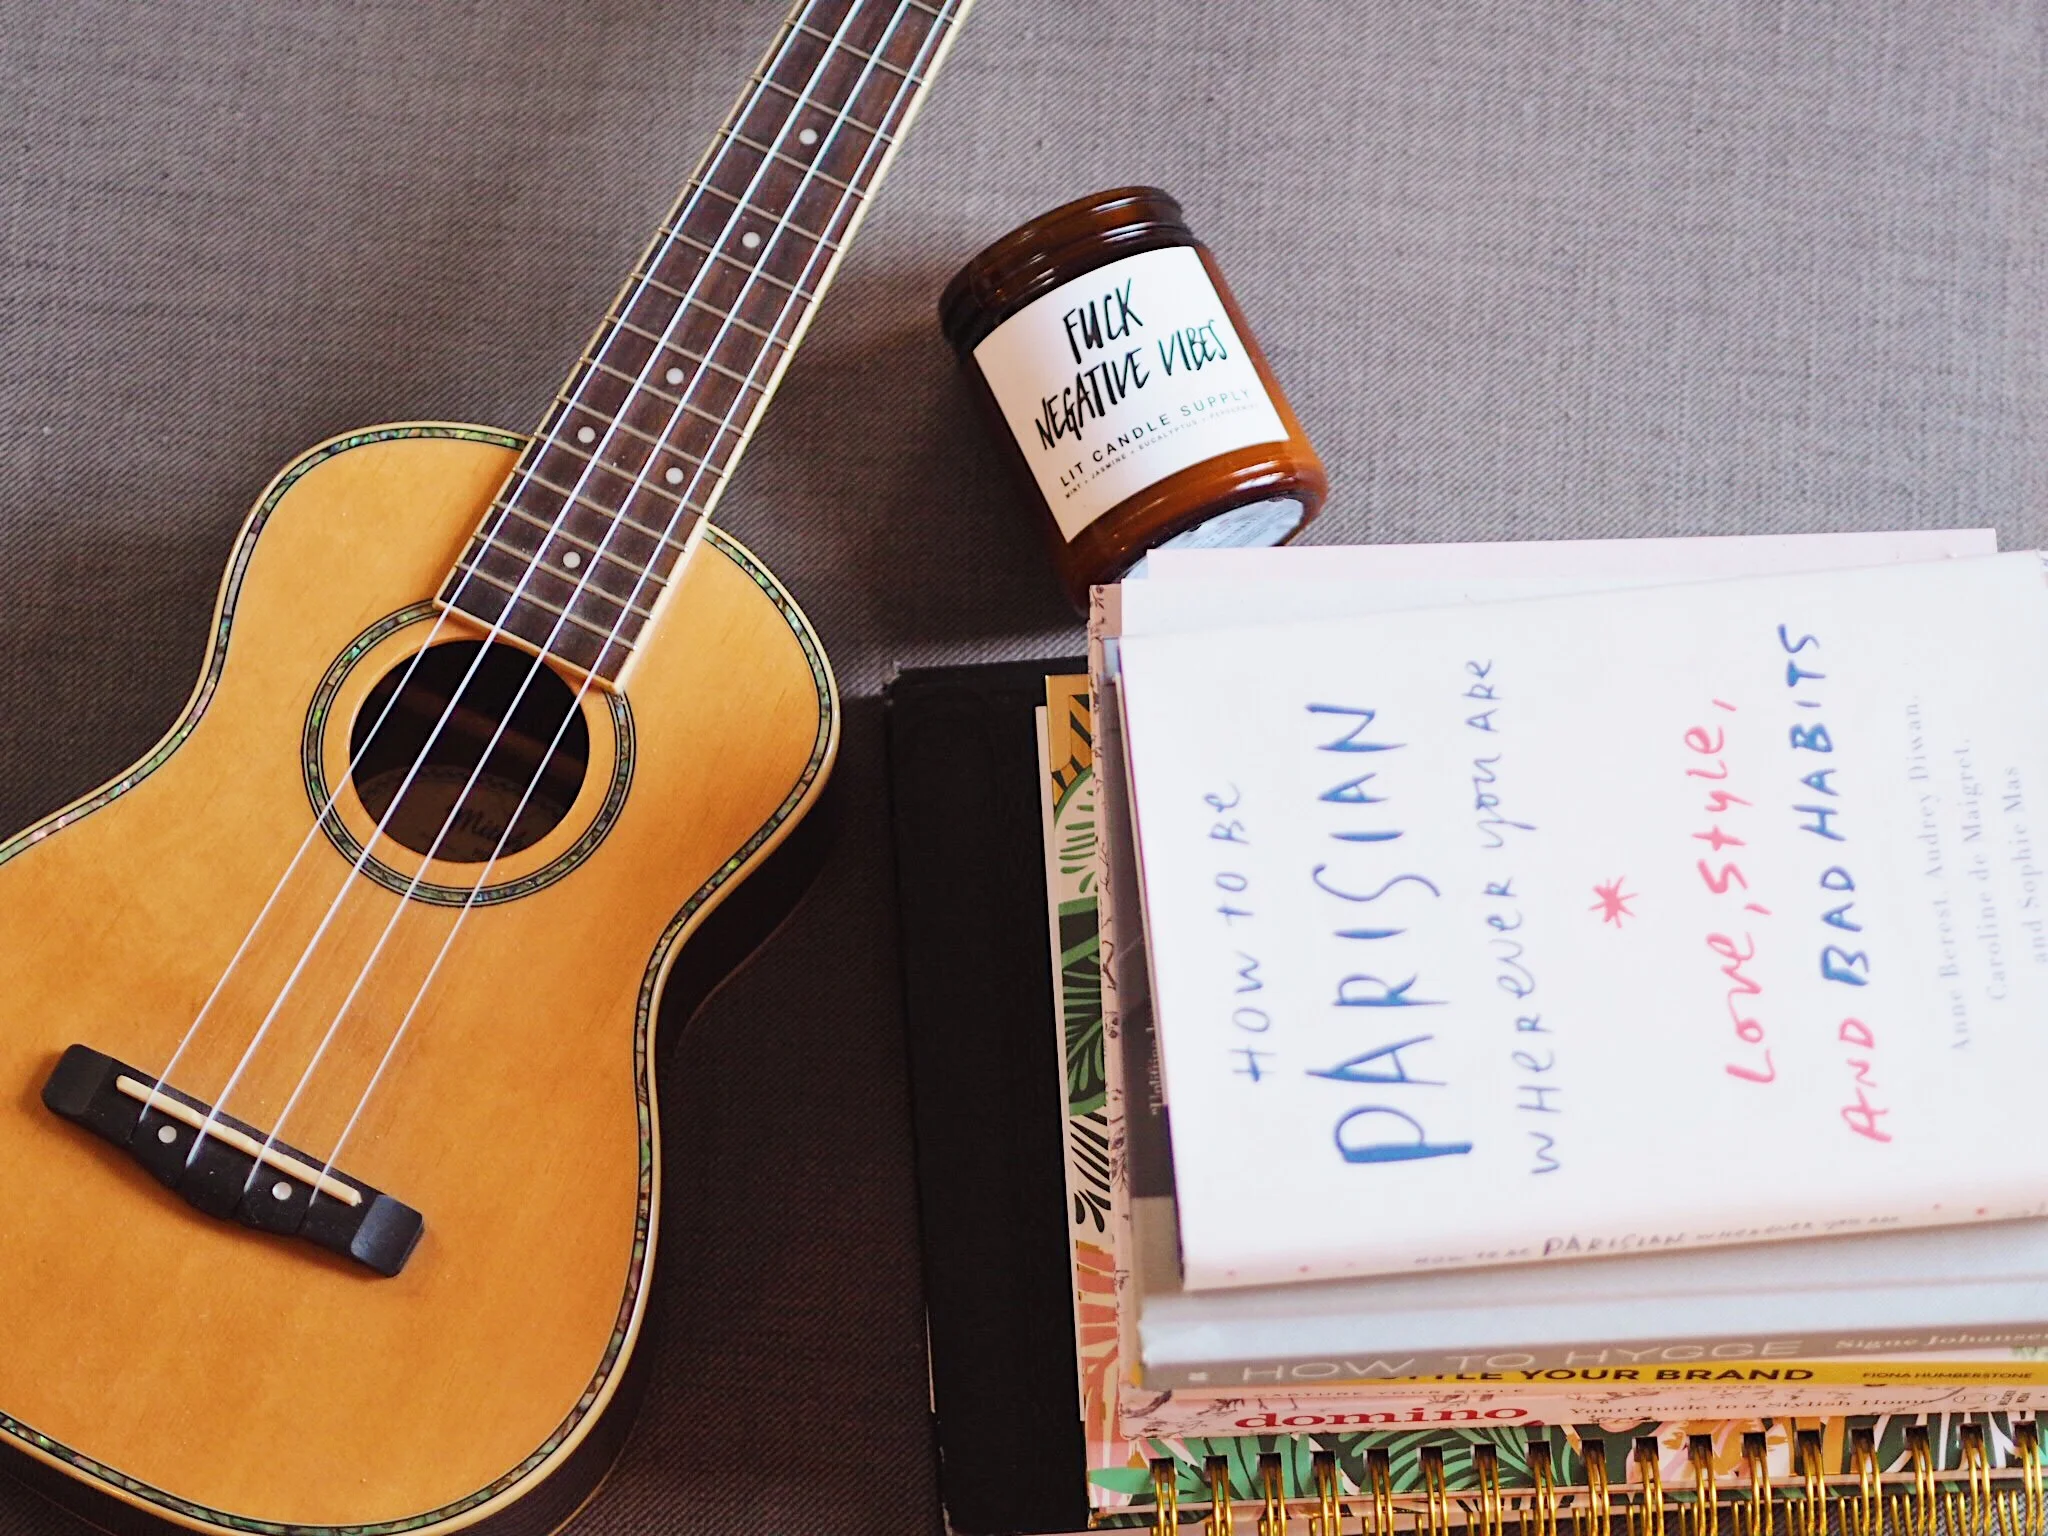 FUCK
NEGATIVE VIBES
LIT CANDLE SUPPLY
MINT + JASMINE + EUCALYPTUS +
HOW TO BE
PARISIAN
WHEREVER YOU ARE
LOVE, STYLE,
AND BAD HABITS
Anne Berest, Audrey Diwan,
Caroline de Maigret,
and Sophie Mas
HOW TO BE PARISIAN WHEREVER YOU ARE
HOW TO HYGGE Signe Johansen
STYLE YOUR BRAND FIONA HUMBERSTONE
CAPTURE YOUR STYLE
domino Your Guide to a Stylish Home